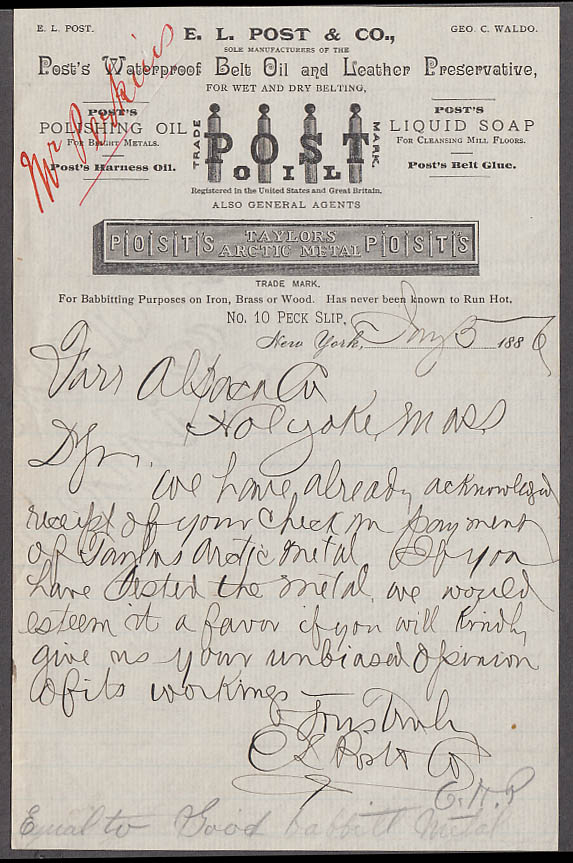 E. L. POST.
E. L. POST & CO.,
GEO. C. WALDO.
SOLE MANUFACTURERS OF THE
Post's Waterproof Belt Oil and Leather Preservative,
FOR WET AND DRY BELTING,
Mr Perkins
POST'S
POLISHING OIL
For Bright Metals.
Post's Harness Oil.
TRADE
POST
OIL
MARK.
Registered in the United States and Great Britain.
POST'S
LIQUID SOAP
For Cleansing Mill Floors.
Post's Belt Glue.
ALSO GENERAL AGENTS
POST'S
TAYLORS
ARCTIC METAL
POST'S
TRADE MARK.
For Babbitting Purposes on Iron, Brass or Wood. Has never been known to Run Hot.
No. 10 Peck Slip,
New York, Jany 5 1886
Farr Alpaca Co
Holyoke, Mass
We have already acknowledged
receipt of your check in payment
of Taylors Arctic metal If you
have tested the metal, we would
esteem it a favor if you will kindly
give us your unbiased opinion
of its workings
Yours Truly
E L Post & Co
Equal to Good babbitt metal